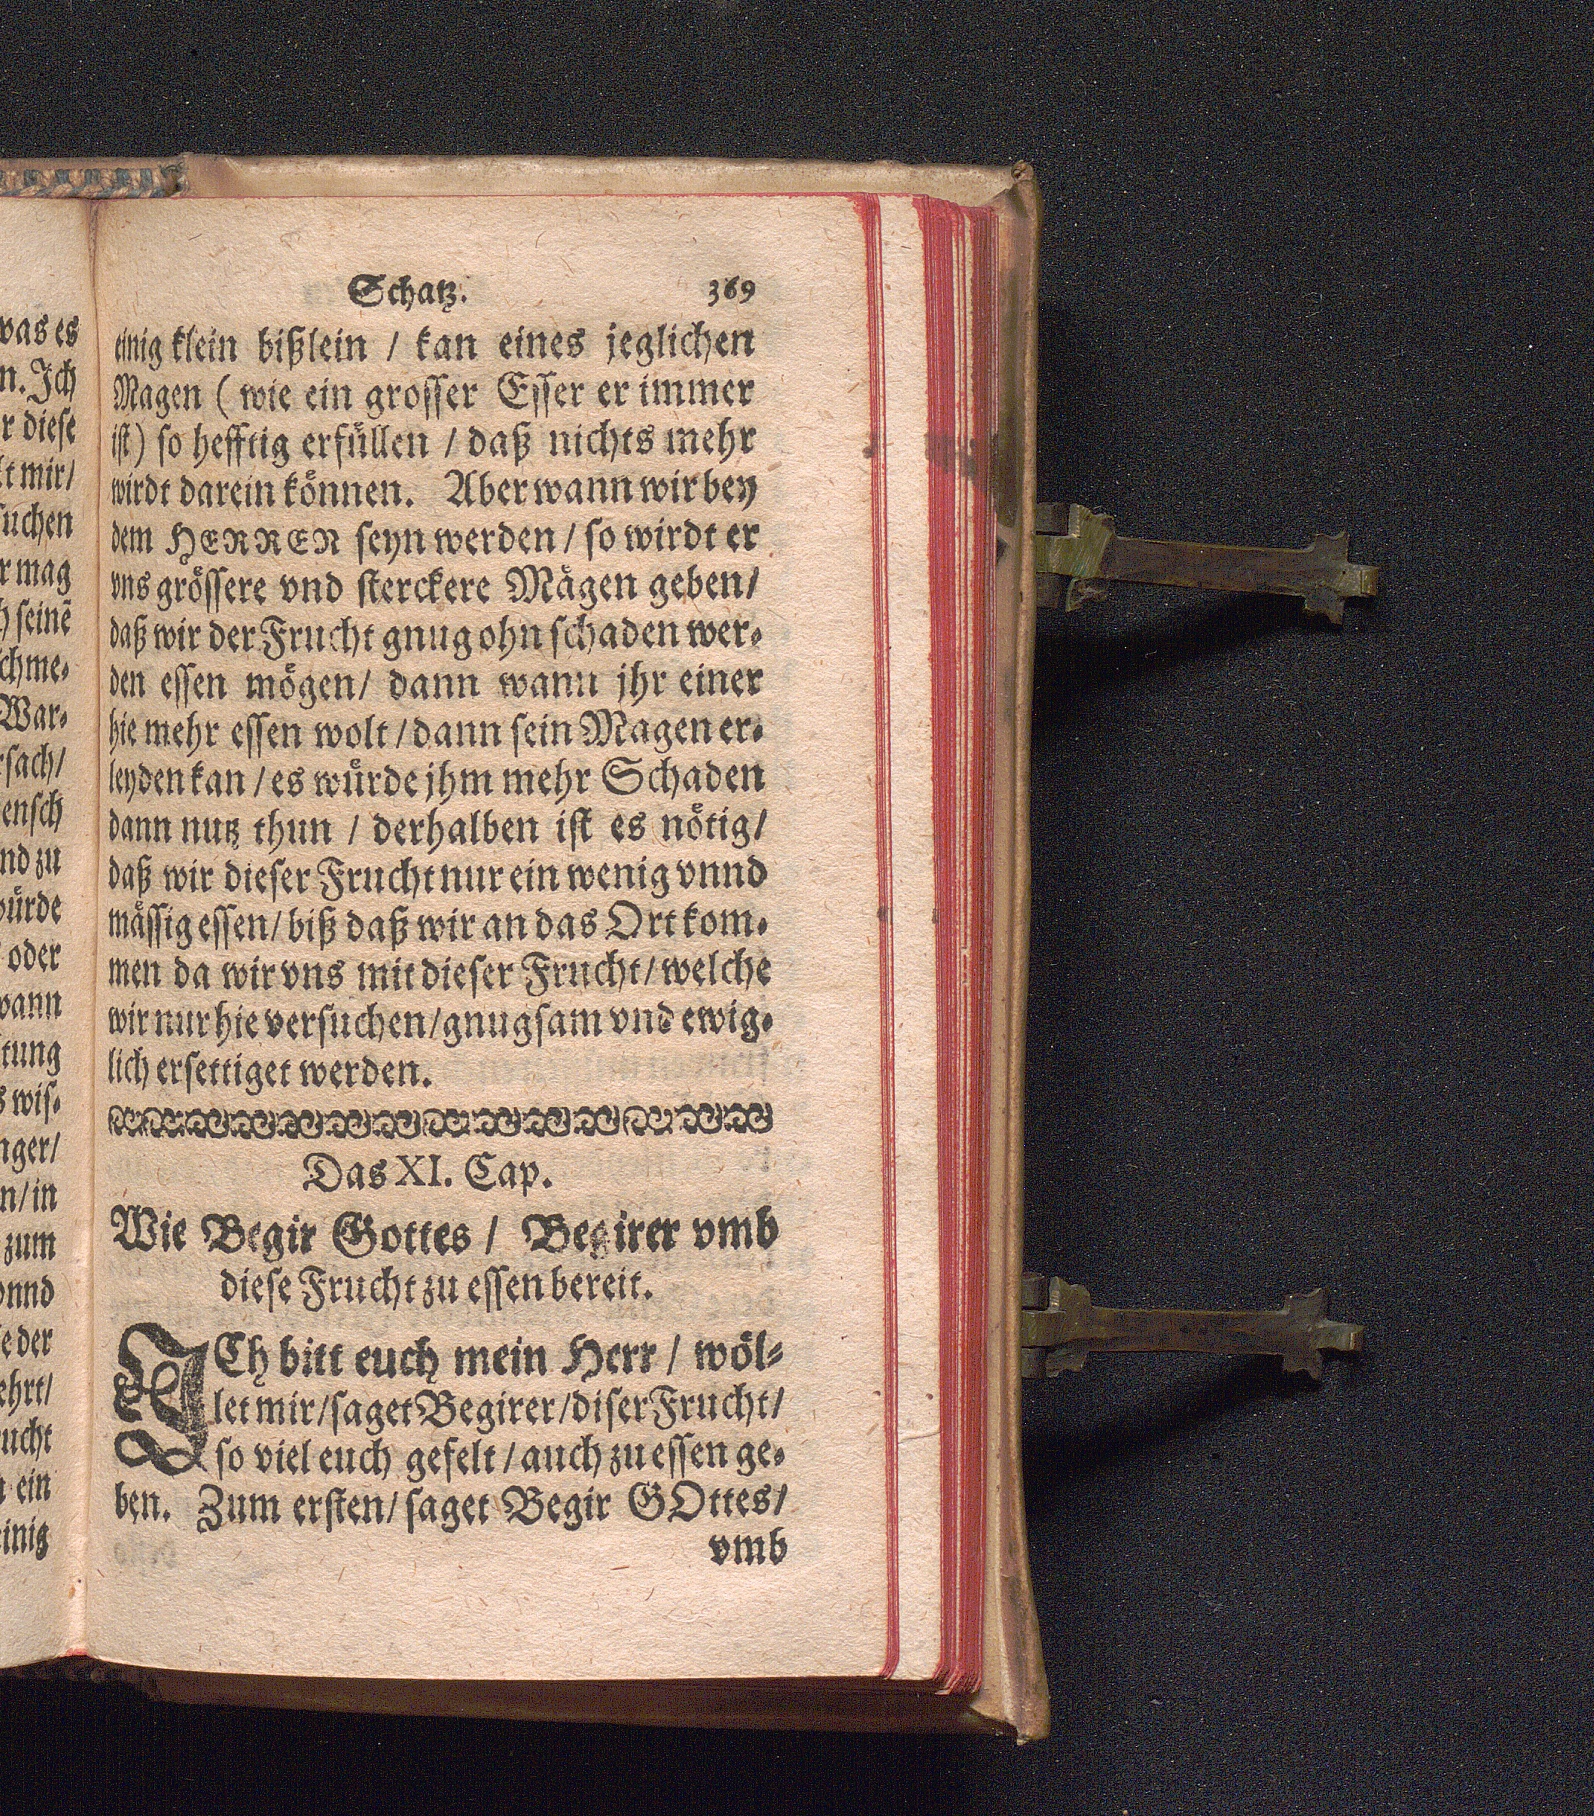 Schatz. 369
einig klein bißlein / kan eines jeglichen
Magen ( wie ein grosser Esser er immer
ist) so hefftig erfüllen / daß nichts mehr
wirdt darein können. Aber wann wir bey
dem HERREN seyn werden / so wirdt er
vns grössere vnd sterckere Mägen geben/
daß wir der Frucht gnug ohn schaden wer-
den essen mögen/ dann wann jhr einer
hie mehr essen wolt / dann sein Magen er-
leyden kan / es würde jhm mehr Schaden
dann nutz thun / derhalben ist es nötig/
daß wir dieser Frucht nur ein wenig vnnd
mässig essen/ biß daß wir an das Ort kom-
men da wir vns mit dieser Frucht/ welche
wir nur hie versuchen/ gnugsam vnd ewig-
lich ersettiget werden.
Das XI. Cap.
Wie Begir Gottes / Begirer vmb
diese Frucht zu essen bereit.
ICh bitt euch mein Herr / wöl-
let mir/ saget Begirer/ diser Frucht/
so viel euch gefelt / auch zu essen ge-
ben. Zum ersten/ saget Begir GOttes/
vmb
was es
n. Ich
r diese
t mir/
suchen
r mag
h seinē
chme-
War-
sach/
ensch
nd zu
würde
oder
wann
tung
s wis-
nger/
n/ in
zum
vnnd
se der
ehrt/
ucht
ein
einig